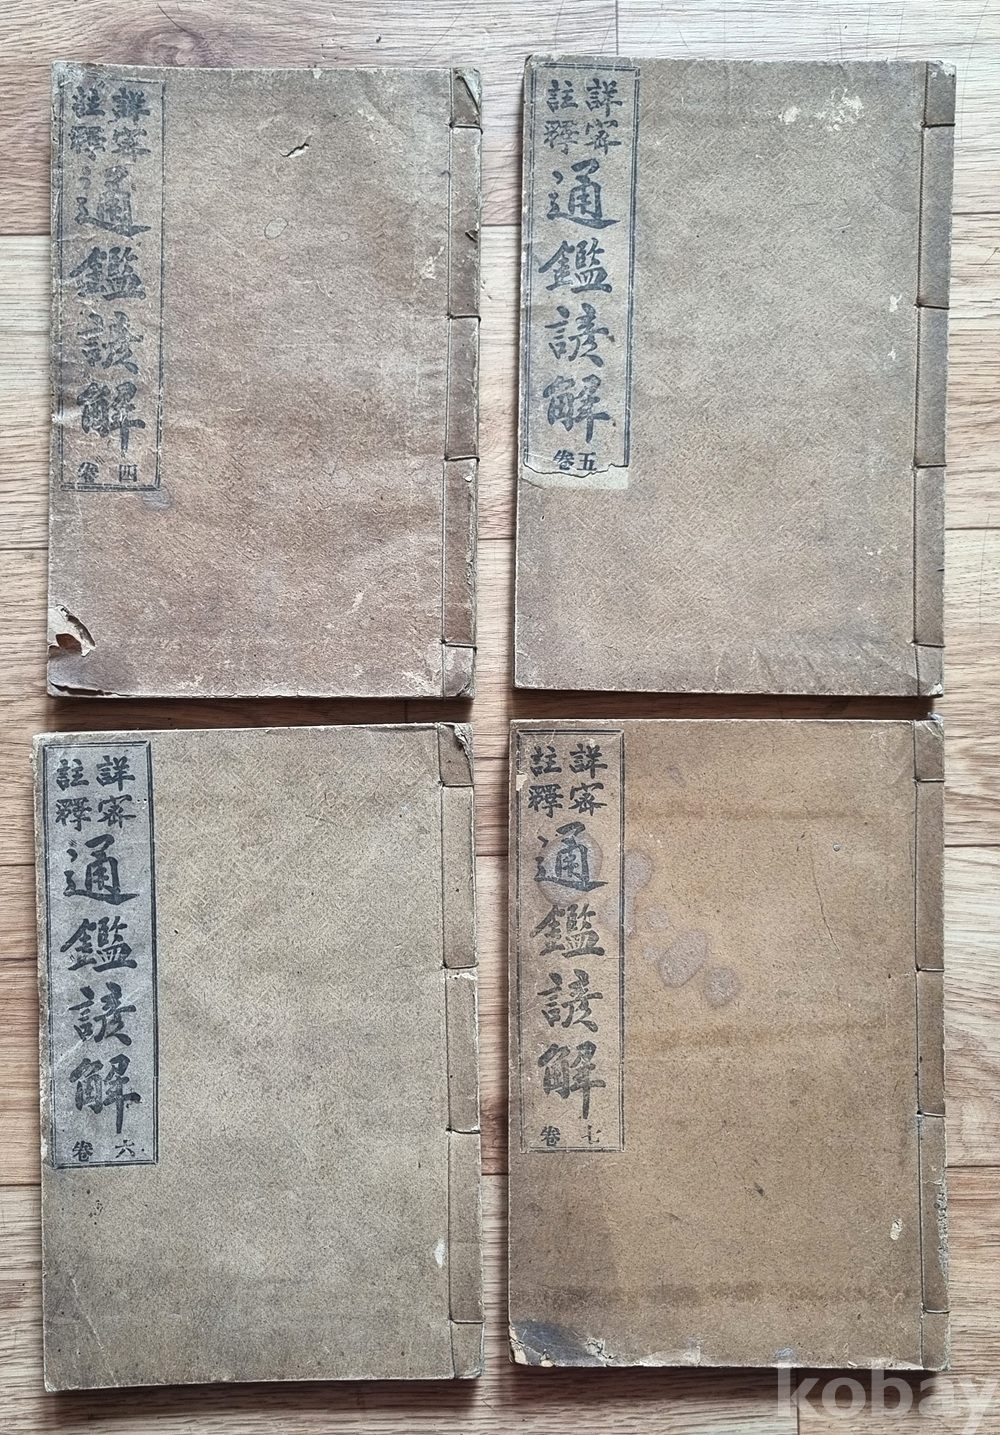 詳密
註釋
通鑑諺解
卷四
詳密
註釋
通鑑諺解
卷五
詳密
註釋
通鑑諺解
卷六
詳密
註釋
通鑑諺解
卷七
kobay